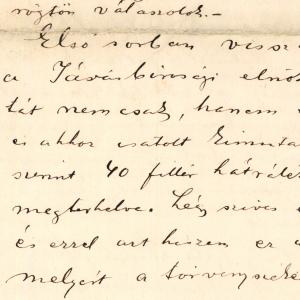 rögtön válaszolok.-
Első sorban vissz
a Járásbirósági elnö
tát nemcsak, hanem
és ahhoz csatolt kimuta
szerint 40 fillér hátrálék
megterhelve. Légy szives
és ezzel azt hiszem ez a
melyért a törvényszék